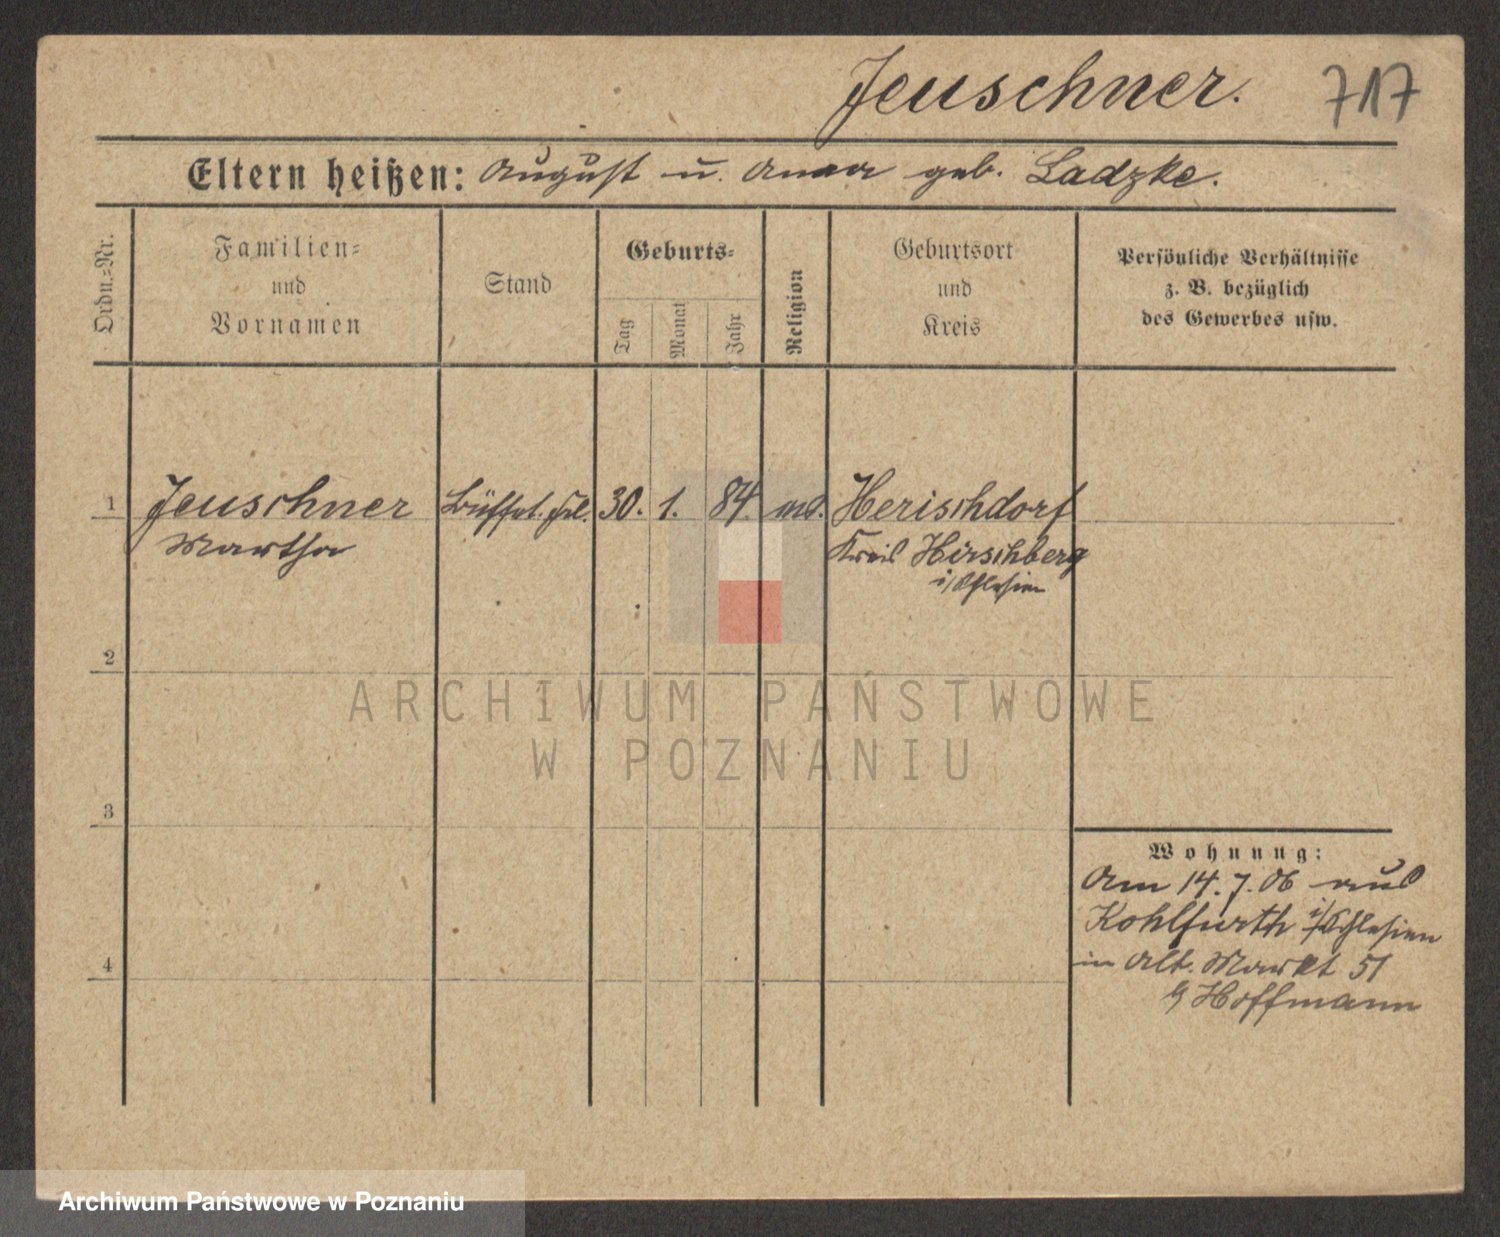 Jeuschner.
717
Eltern heißen: August u. Anna geb. Ladzke.
Ordn.=Nr.
Familien=
und
Vornamen
Stand
Geburts=
Tag
Monat
Jahr
Religion
Geburtsort
und
Kreis
Persönliche Verhältnisse
z. B. bezüglich
des Gewerbes usw.
1 Jeuschner Büffet. Frl. 30. 1. 84 Herischdorf
Martha Kreis Hirschberg
i/Schlesien
2
3
4
Wohnung:
Am 14.7.06 aus
Kohlfurth i/Schlesien
in Alt. Markt 51
b/ Hoffmann
ARCHIWUM PAŃSTWOWE
W POZNANIU
Archiwum Państwowe w Poznaniu